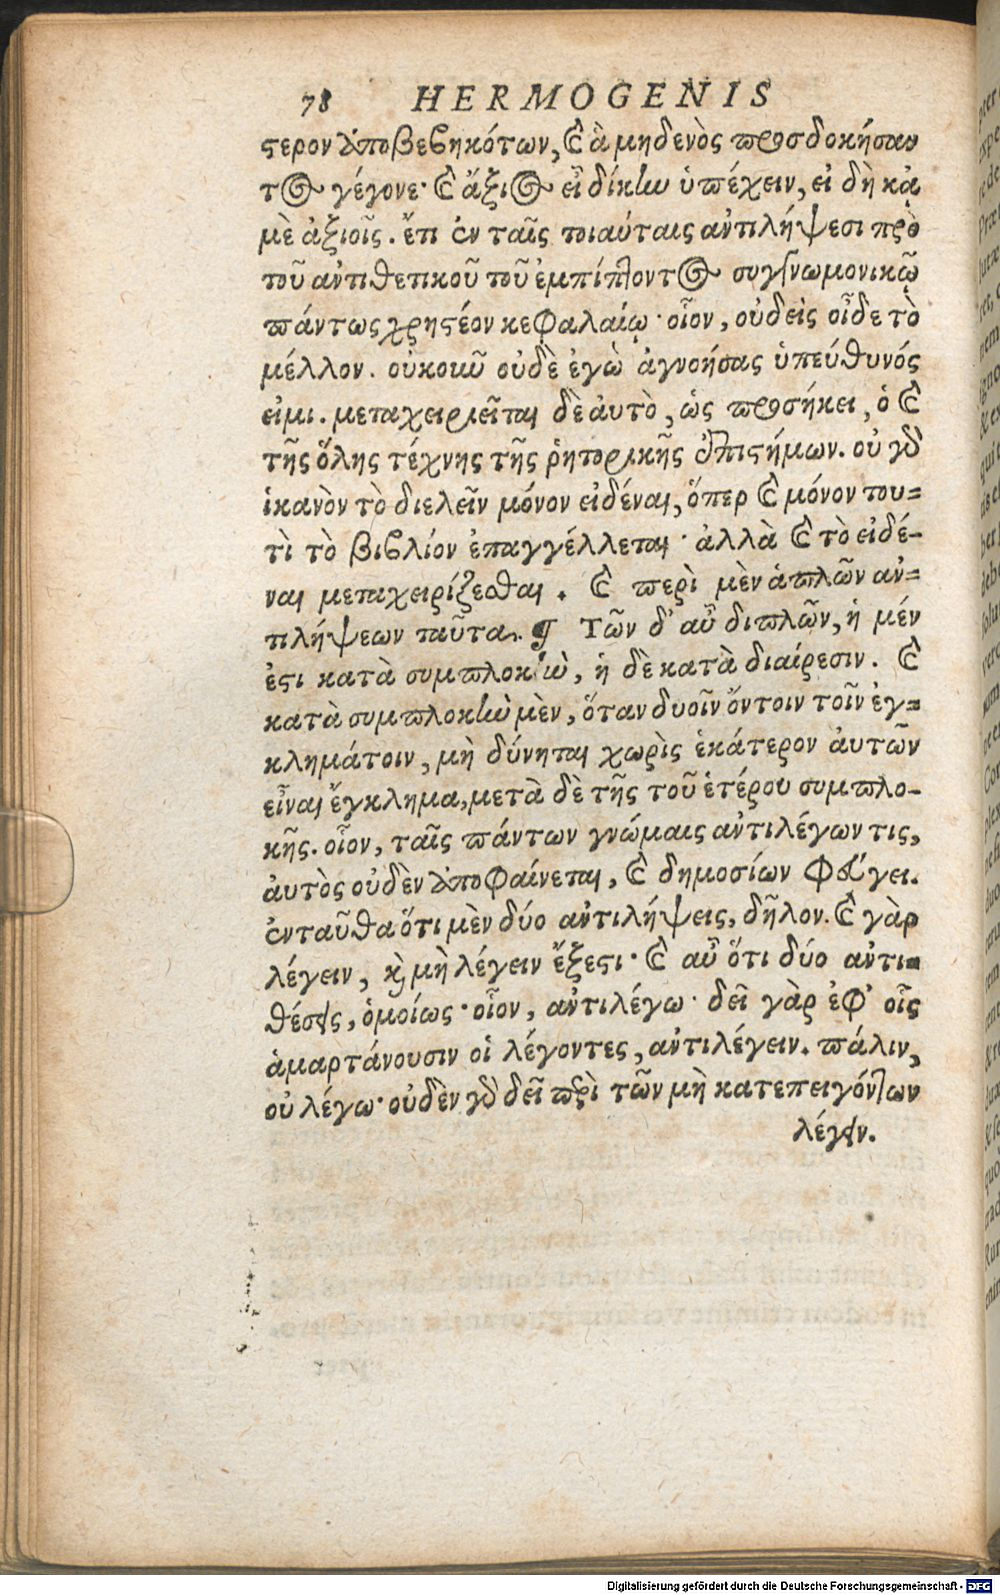 78 HERMOGENIS
στερον ἀποβεβηκότων, καὶ ἃ μηδενὸς προσδοκήσαν
τος γέγονε· καὶ ἄξιος εἶ δίκην ὑπέχειν, εἰ δὴ κἀ
μὲ ἀξιοῖς. ἔτι ἐν ταῖς τοιαύταις ἀντιλήψεσι πρὸ
τοῦ ἀντιθετικοῦ τοῦ ἐμπίπτοντος συγγνωμονικῷ
πάντως χρηστέον κεφαλαίῳ· οἷον, οὐδεὶς οἶδε τὸ
μέλλον. οὐκοῦν οὐδὲ ἐγὼ ἀγνοήσας ὑπεύθυνός
εἰμι. μεταχειριεῖται δὲ αὐτὸ, ὡς προσήκει, ὁ καὶ
τῆς ὅλης τέχνης τῆς ῥητορικῆς ἐπιστήμων. οὐ γὰρ
ἱκανὸν τὸ διελεῖν μόνον εἰδέναι, ὅπερ καὶ μόνον του-
τὶ τὸ βιβλίον ἐπαγγέλλεται· ἀλλὰ καὶ τὸ εἰδέ-
ναι μεταχειρίζεσθαι. καὶ περὶ μὲν ἁπλῶν ἀν-
τιλήψεων ταῦτα. ¶ Τῶν δ' αὖ διπλῶν, ἡ μέν
ἐστι κατὰ συμπλοκὴν, ἡ δὲ κατὰ διαίρεσιν. καὶ
κατὰ συμπλοκὴν μὲν, ὅταν δυοῖν ὄντοιν τοῖν ἐγ-
κλημάτοιν, μὴ δύνηται χωρὶς ἑκάτερον αὐτῶν
εἶναι ἔγκλημα, μετὰ δὲ τῆς τοῦ ἑτέρου συμπλο-
κῆς. οἷον, ταῖς πάντων γνώμαις ἀντιλέγων τις,
αὐτὸς οὐδὲν ἀποφαίνεται, καὶ δημοσίων φεύγει.
ἐνταῦθα ὅτι μὲν δύο ἀντιλήψεις, δῆλον. καὶ γὰρ
λέγειν, καὶ μὴ λέγειν ἔξεστι· καὶ αὖ ὅτι δύο ἀντι-
θέσεις, ὁμοίως· οἷον, ἀντιλέγω· δεῖ γὰρ ἐφ' οἷς
ἁμαρτάνουσιν οἱ λέγοντες, ἀντιλέγειν. πάλιν,
οὐ λέγω· οὐδὲν γὰρ δεῖ περὶ τῶν μὴ κατεπειγόντων
λέγειν.
Digitalisierung gefördert durch die Deutsche Forschungsgemeinschaft - DFG